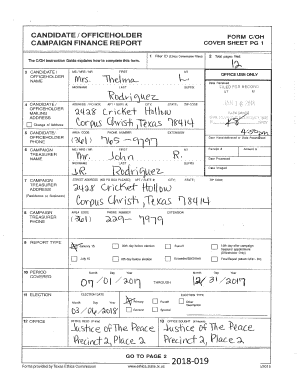 CANDIDATE / OFFICEHOLDER FORM C/OH
CAMPAIGN FINANCE REPORT COVER SHEET PG 1
The C/OH Instruction Guide explains how to complete this form.
1 Filer ID (Ethics Commission Filers)
2 Total pages filed:
12
3 CANDIDATE / OFFICEHOLDER NAME
MS / MRS / MR FIRST MI
Mrs. Thelma
LAST SUFFIX
Rodriguez
OFFICE USE ONLY
Date Received
FILED FOR RECORD
4 CANDIDATE / OFFICEHOLDER MAILING ADDRESS
Change of Address
ADDRESS / PO BOX; APT / SUITE #; CITY; STATE; ZIP CODE
2428 Cricket Hollow
Corpus Christi, Texas 78414
5 CANDIDATE / OFFICEHOLDER PHONE
AREA CODE PHONE NUMBER EXTENSION
(361) 765-9797
Date Hand-delivered or Date Postmarked
6 CAMPAIGN TREASURER NAME
MS / MRS / MR FIRST MI
Mr. John R.
LAST SUFFIX
JR Rodriguez
Receipt # Amount $
Date Processed
Date Imaged
7 CAMPAIGN TREASURER ADDRESS
(Residence or Business)
STREET ADDRESS (NO PO BOX PLEASE); APT / SUITE #; CITY; STATE; ZIP CODE
2428 Cricket Hollow
Corpus Christi, Texas 78414
8 CAMPAIGN TREASURER PHONE
AREA CODE PHONE NUMBER EXTENSION
(361) 229-7979
9 REPORT TYPE
January 15
30th day before election
Runoff
15th day after campaign treasurer appointment (Officeholder Only)
July 15
8th day before election
Exceeded $500 limit
Final Report (Attach C/OH - FR)
10 PERIOD COVERED
Month Day Year
07/01/2017
THROUGH
Month Day Year
12/31/2017
11 ELECTION
ELECTION DATE
Month Day Year
03/06/2018
ELECTION TYPE
Primary
Runoff
Other Description
General
Special
12 OFFICE
OFFICE HELD (if any)
Justice of the Peace
Precinct 2, Place 2
13 OFFICE SOUGHT (if known)
Justice of the Peace
Precinct 2, Place 2
GO TO PAGE 2
2018-019
Forms provided by Texas Ethics Commission
www.ethics.state.tx.us